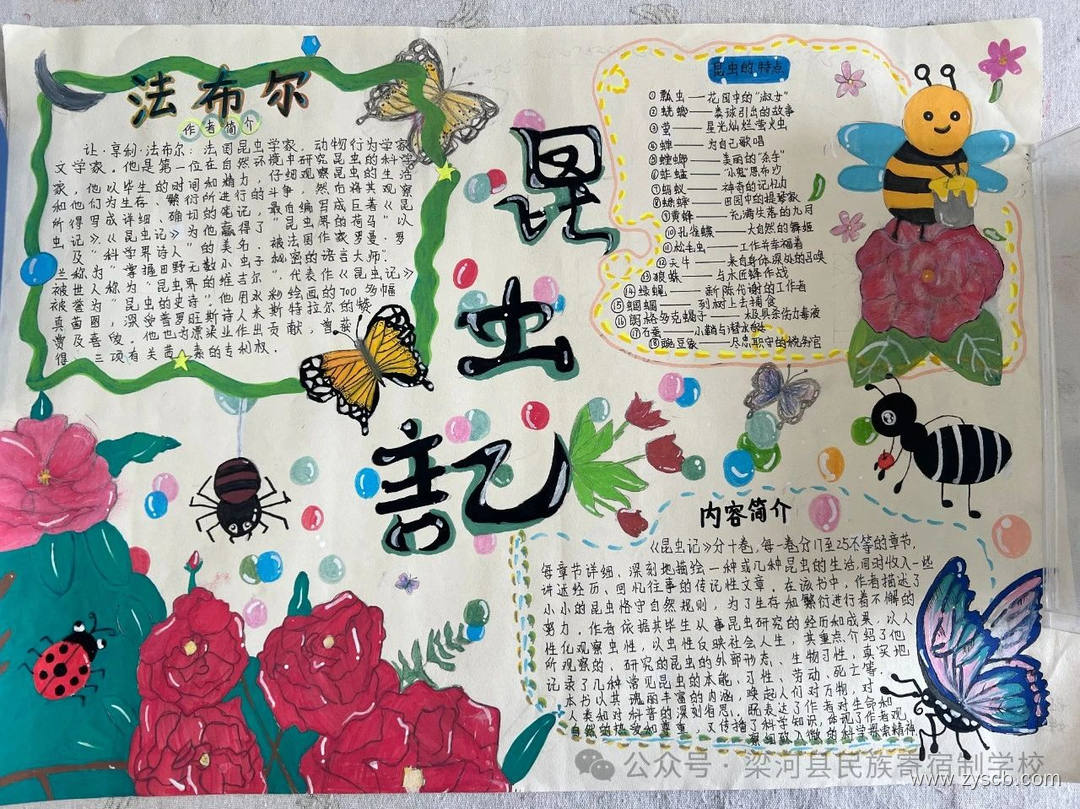 法布尔
作者简介
让·亨利·法布尔：法国昆虫学家、动物行为学家
文学家。他是第一位在自然环境中研究昆虫的科学
家，他以毕生的时间和精力，仔细观察昆虫的生活
和他们为生存、繁衍所进行的斗争，然市将其观察
所得写成详细、确切的笔记，最市编写成巨著《昆
虫记》。《昆虫记》为他赢得了"昆虫界的荷马"以
及"科学界诗人"的美名，被法国作家罗曼·罗
兰称为"掌握田野无数小虫子秘密的语言大师"。
被世人称为"昆虫界的维吉尔"。代表作《昆虫记》
被誉为"昆虫的史诗"他用水彩绘画的700多幅
真菌图，深受普罗旺斯诗人米斯特拉尔的
费及喜爱。他也为漂染业作出贡献，曾获
得 三项有关茜 素的专利权。
昆
虫
記
昆虫的特点
①瓢虫——花园中的"淑女"
②蜣螂——粪球引出的故事
③萤——星光灿烂萤火虫
④蝉——为自己歌唱
⑤螳螂——美丽的"杀手"
⑦蚂蚁——神奇的记忆力
⑧蟋蟀——田园中的提琴家
⑨黄蜂——充满失落的九月
⑩孔雀蝶——大自然的舞姬
⑪松毛虫——工作并幸福着
⑫天牛——来自身体深处的召唤
⑬狼蛛——与水压蜂作战
⑭绿蝇——新陈代谢的工作者
⑮蝈蝈——到树上去捕食
⑯朗格多克蝎子——极具杀伤力毒液
⑱豌豆象——尽忠职守的税务官
内容简介
《昆虫记》分十卷，每一卷分17至25不等的章节，
每章节详细、深刻地描绘一种或几种昆虫的生活，同时收入一些
讲述经历、回忆往事的传记性文章。在该书中，作者描述了
小小的昆虫恪守自然规则，为了生存和繁衍进行着不懈的
努力。作者依据其毕生从事昆虫研究的经历和成果，以人
性化观察虫性，以虫性反映社会人生，其重点介绍了他
所观察的、研究的昆虫的外部形态、生物习性，真实地
记录了几种常见昆虫的本能、习性、劳动、死亡等。
本书以其瑰丽丰富的内涵，唤起人们对万物、对
人类和对科普的深刻省思，既表达了作者对生命和
自然的热爱和尊重，又传播了科学知识，体现了作者观
察细致入微的科学探索精神
公众号·梁河县民族寄宿制学校
www.zyscb.com